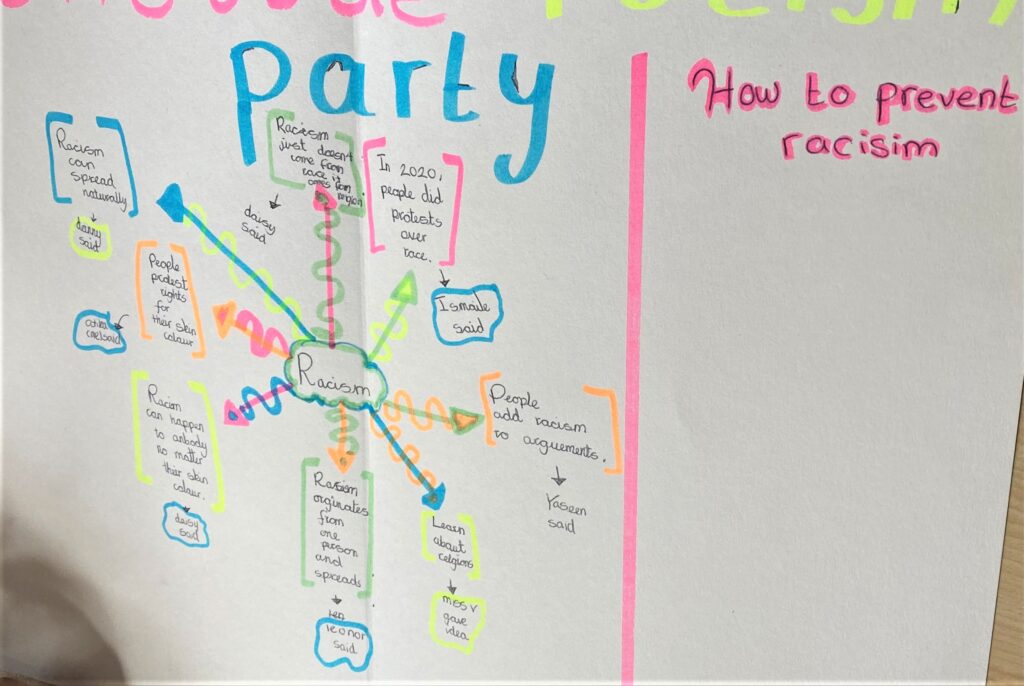 party
How to prevent
racisim
Racism
can
spread
naturally
danny
said
Racism
just doesn't
come from
race it
comes from
religion
daisy
said
In 2020,
people did
protests
over
race.
Ismaile
said
People
protest
rights
for
their skin
colour
said
Racism
Racism
can happen
to anbody
no matter
their skin
colour.
daisy
said
Racism
orginates
from
one
person
and
spreads
leonor
said
Learn
about
religions
miss v
gave
idea
People
add racism
to arguements.
Yaseen
said